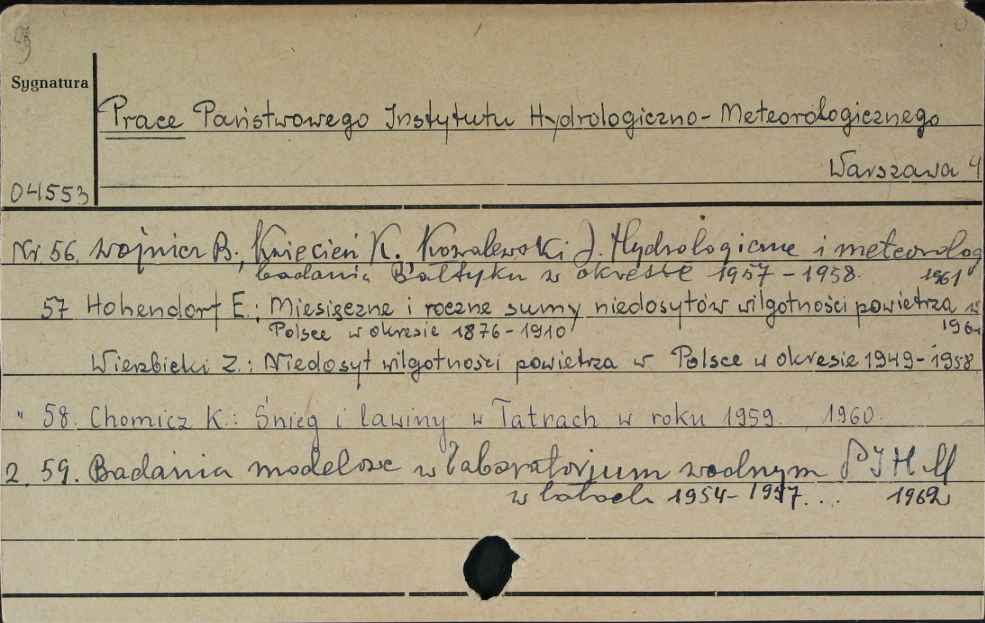 9
Sygnatura
Prace Państwowego Instytutu Hydrologiczno-Meteorologicznego
Warszawa 4
04553
Nr 56. Wojnicz B., Kwiecień K. Kowalewski J. Hydrologiczne i meteorolog
badania Bałtyku w okresie 1957-1958. 1961
57 Hohendorf E.: Miesięczne i roczne sumy niedosytów wilgotności powietrza w
Polsce w okresie 1876-1910
Wierzbicki Z.: Niedosyt wilgotności powietrza w Polsce w okresie 1949-1958
" 58. Chomicz K.: Śnieg i lawiny w Tatrach w roku 1959. 1960.
2. 59. Badania modelowe w laboratorium wodnym PIHM
w latach 1954-1957... 1962